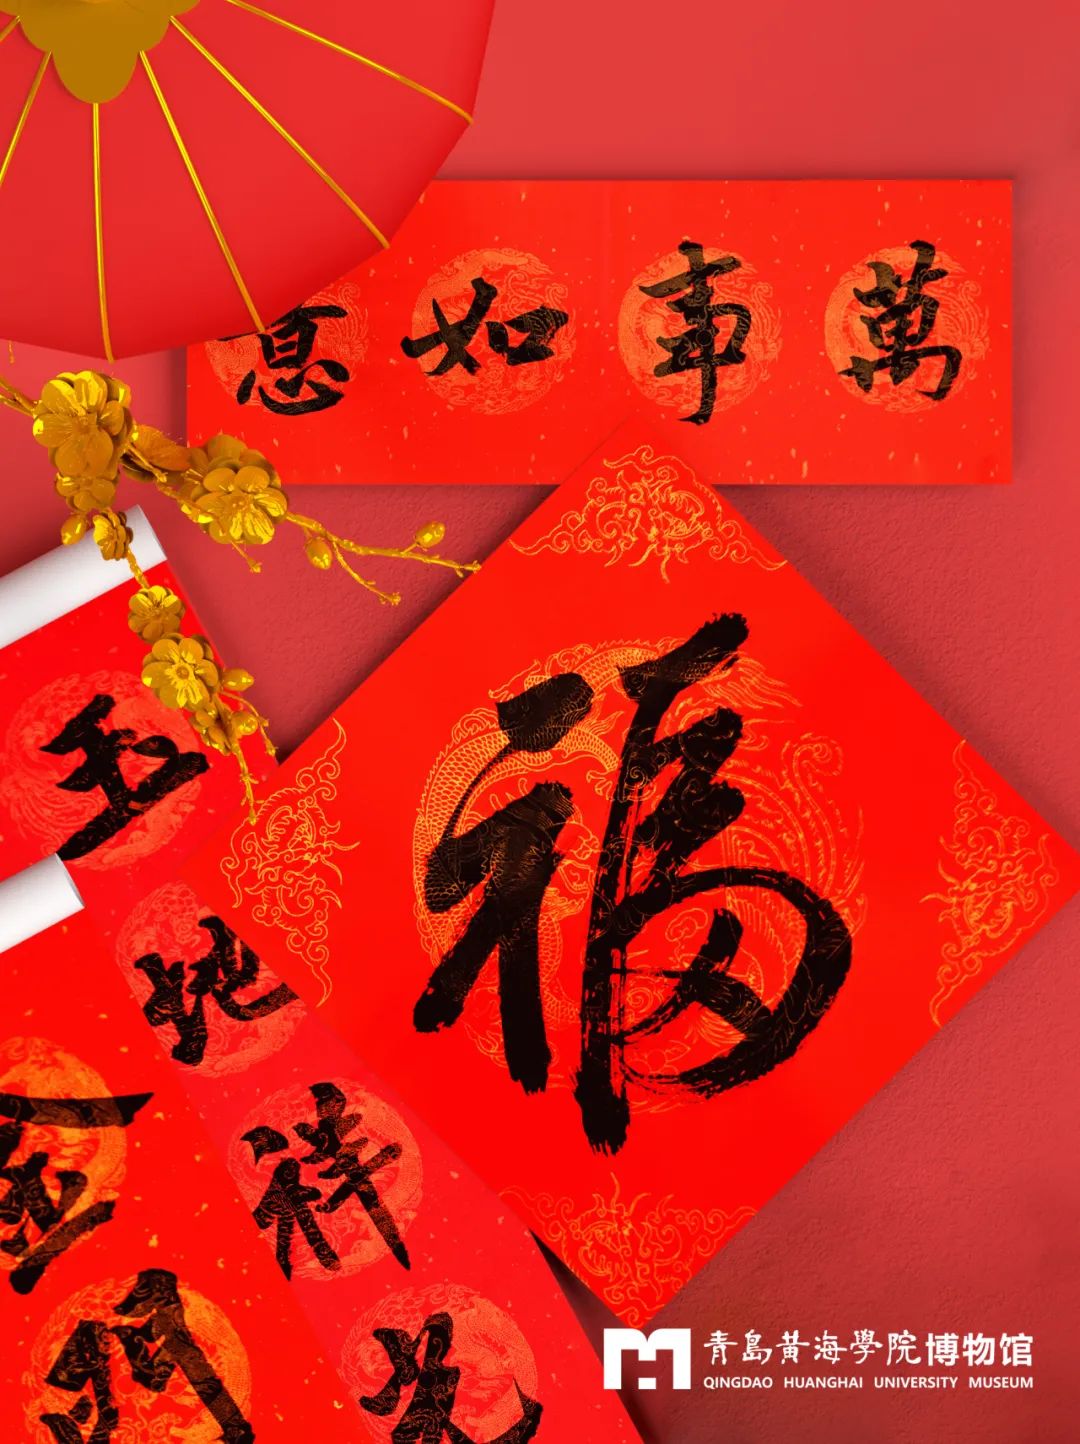 萬事如意
福
玉地祥光
金門
青島黄海學院博物馆
QINGDAO HUANGHAI UNIVERSITY MUSEUM